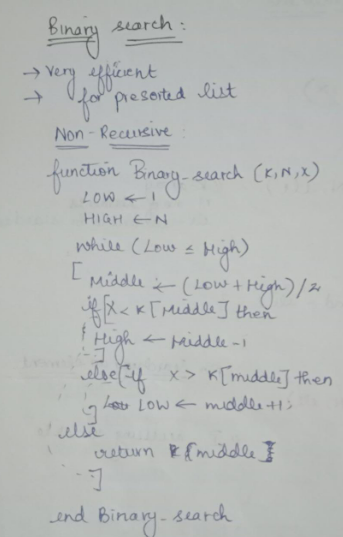 Binary search :
→ Very efficient
→ for presorted list
Non-Recursive
function Binary-search (K,N,X)
LOW ← 1
HIGH ← N
while (Low ≤ High)
[ Middle ← (Low + High)/2
if [X < K[Middle] then
High ← Middle -1
]
else [if X > K[middle] then
] LOW ← middle +1;
else
return K[middle]
]
end Binary-search